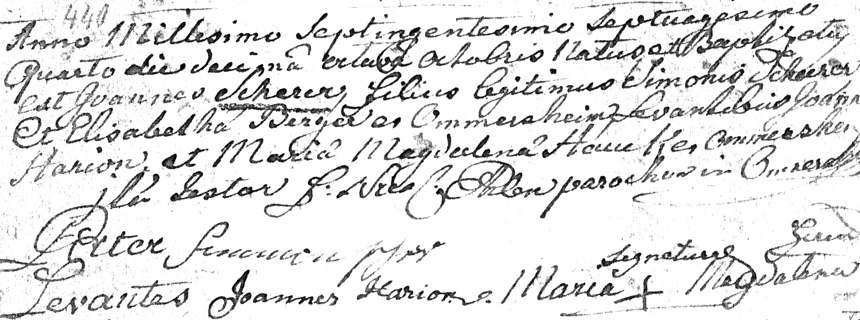 440
Anno Millesimo Septingentesimo Septuagesimo
quarto die decimâ octavâ octobris Natus et Baptizatus
est Joannes Scherer filius legitimus Simonis Scherer
et Elisabetha Berger ex Ommersheim Levantibus Joanne
Harion et Mariâ Magdalenâ Hauck ex Ommersheim
ita testor parochus in Ommersh
Levantes Joannes Harion Maria + Magdalena
signature